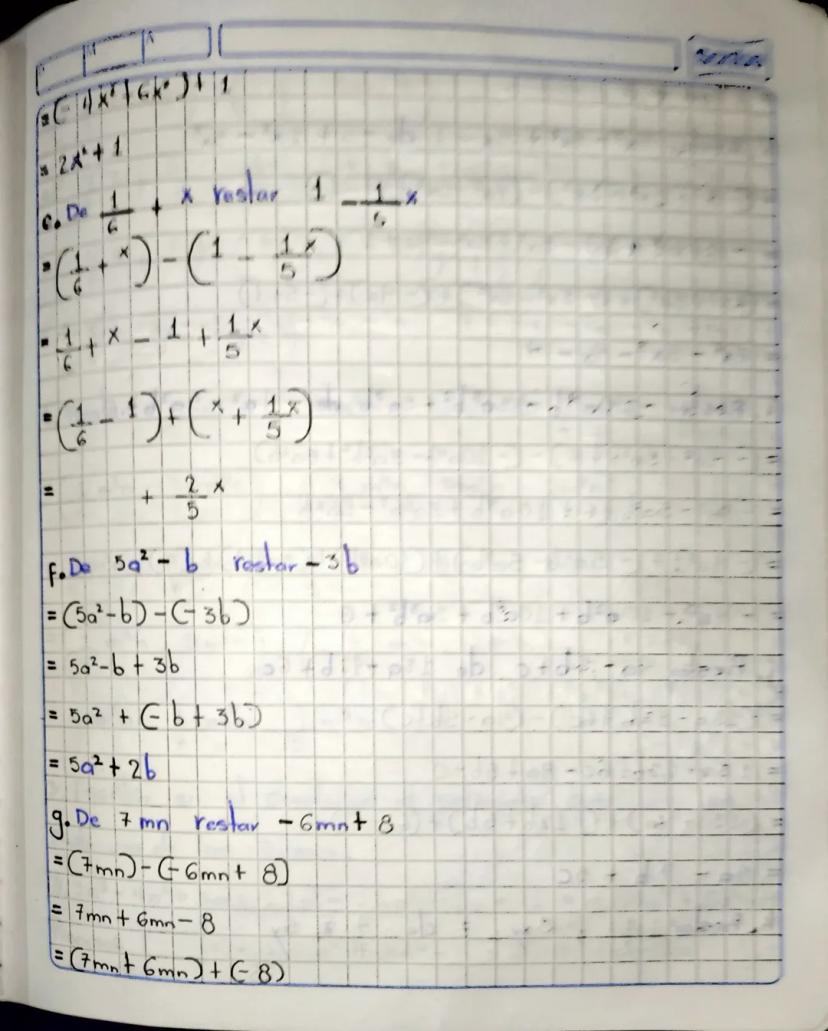 = (-4x² + 6x²) + 1
= 2x² + 1
e. De 1/6 + x restar 1 - 1/5 x
= (1/6 + x) - (1 - 1/5 x)
= 1/6 + x - 1 + 1/5 x
= (1/6 - 1) + (x + 1/5 x)
= + 2/5 x
f. De 5a² - b restar - 3b
= (5a² - b) - (-3b)
= 5a² - b + 3b
= 5a² + (-b + 3b)
= 5a² + 2b
g. De 7mn restar - 6mn + 8
= (7mn) - (-6mn + 8)
= 7mn + 6mn - 8
= (7mn + 6mn) + (-8)